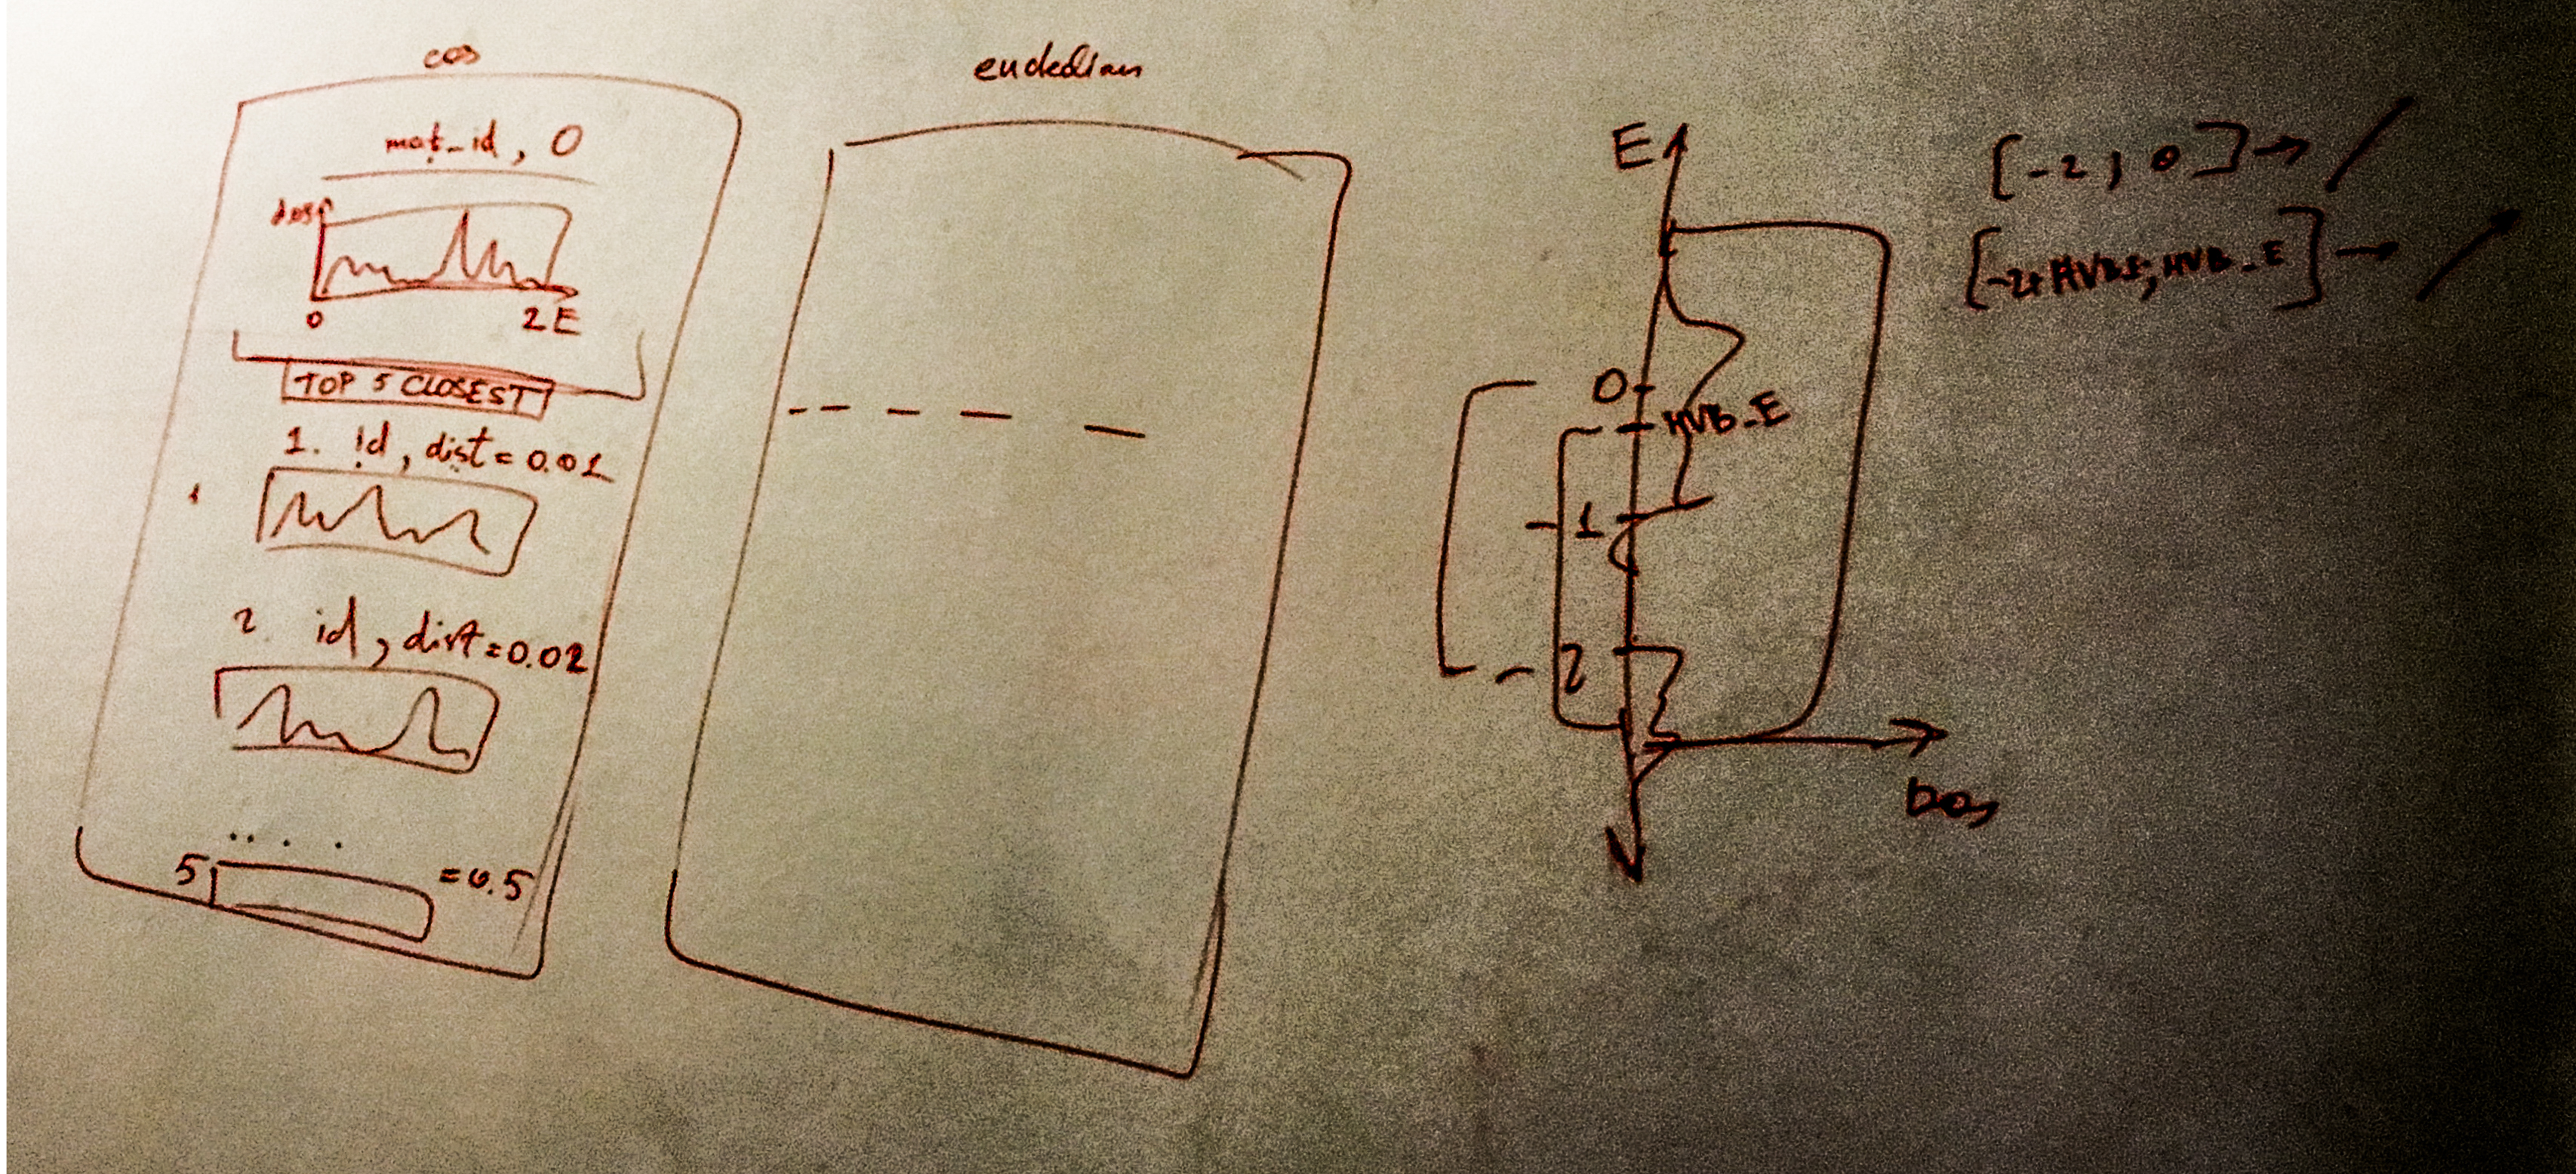 cos
mat_id, 0
dos
0
2 E
TOP 5 CLOSEST
1. id, dist = 0.01
2 id, dist = 0.02
. . . .
5 = 0.5
euclidian
E
0
HVB_E
1
2
DOS
[-2, 0] →
[-2+HVB_E; HVB_E] →